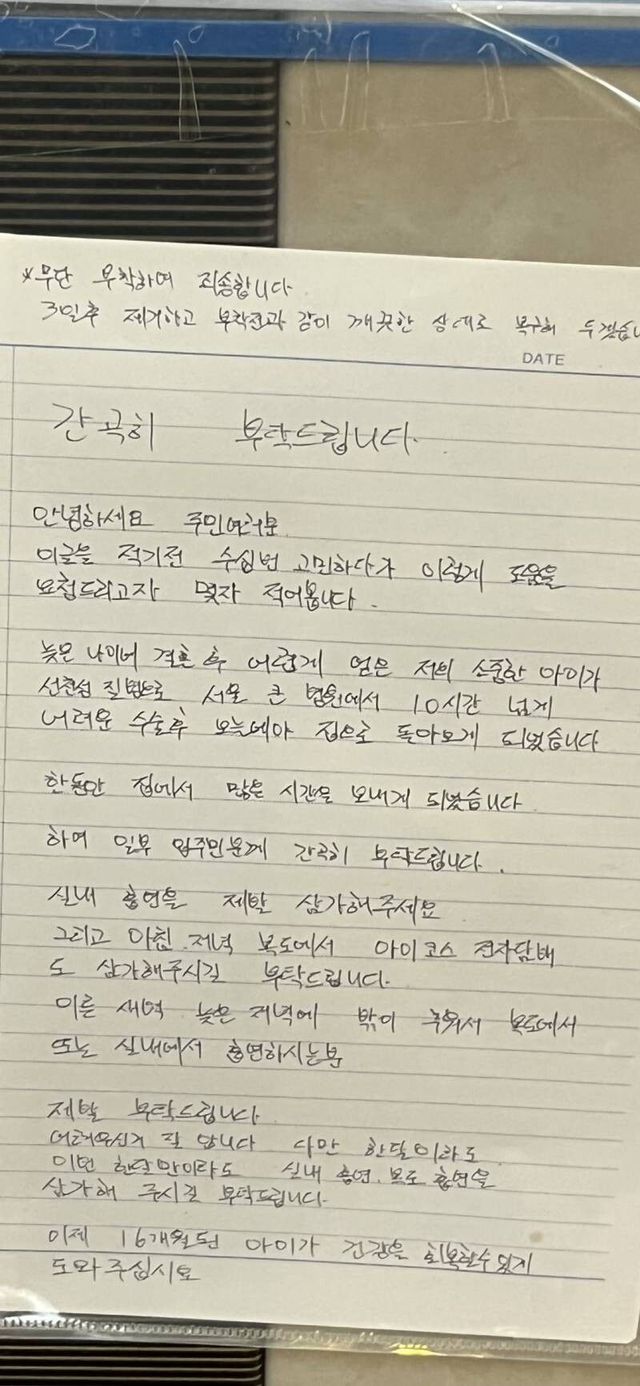 *무단 부착하여 죄송합니다
3일후 제거하고 부착전과 같이 깨끗한 상태로 복구해 두겠습니
DATE
간곡히 부탁드립니다.
안녕하세요 주민여러분
이글을 적기전 수십번 고민하다가 이렇게 도움을
요청드리고자 몇자 적어봅니다.
늦은 나이에 결혼 후 어렵게 얻은 저의 소중한 아이가
선천성 질병으로 서울 큰 병원에서 10시간 넘게
어려운 수술후 오늘에야 집으로 돌아오게 되었습니다
한동안 집에서 많은 시간을 보내게 되었습니다
하여 일부 입주민분께 간곡히 부탁드립니다.
실내 흡연을 제발 삼가해주세요
그리고 아침 저녁 복도에서 아이코스 전자담배
도 삼가해주시길 부탁드립니다.
이른 새벽 늦은 저녁에 밖이 추워서 복도에서
또는 실내에서 흡연하시는분
제발 부탁드립니다
어려우신거 잘 압니다 다만 한달이라도
이번 한달만이라도 실내 흡연, 복도 흡연을
삼가해 주시길 부탁드립니다.
이제 16개월된 아이가 건강을 회복할수있게
도와주십시요